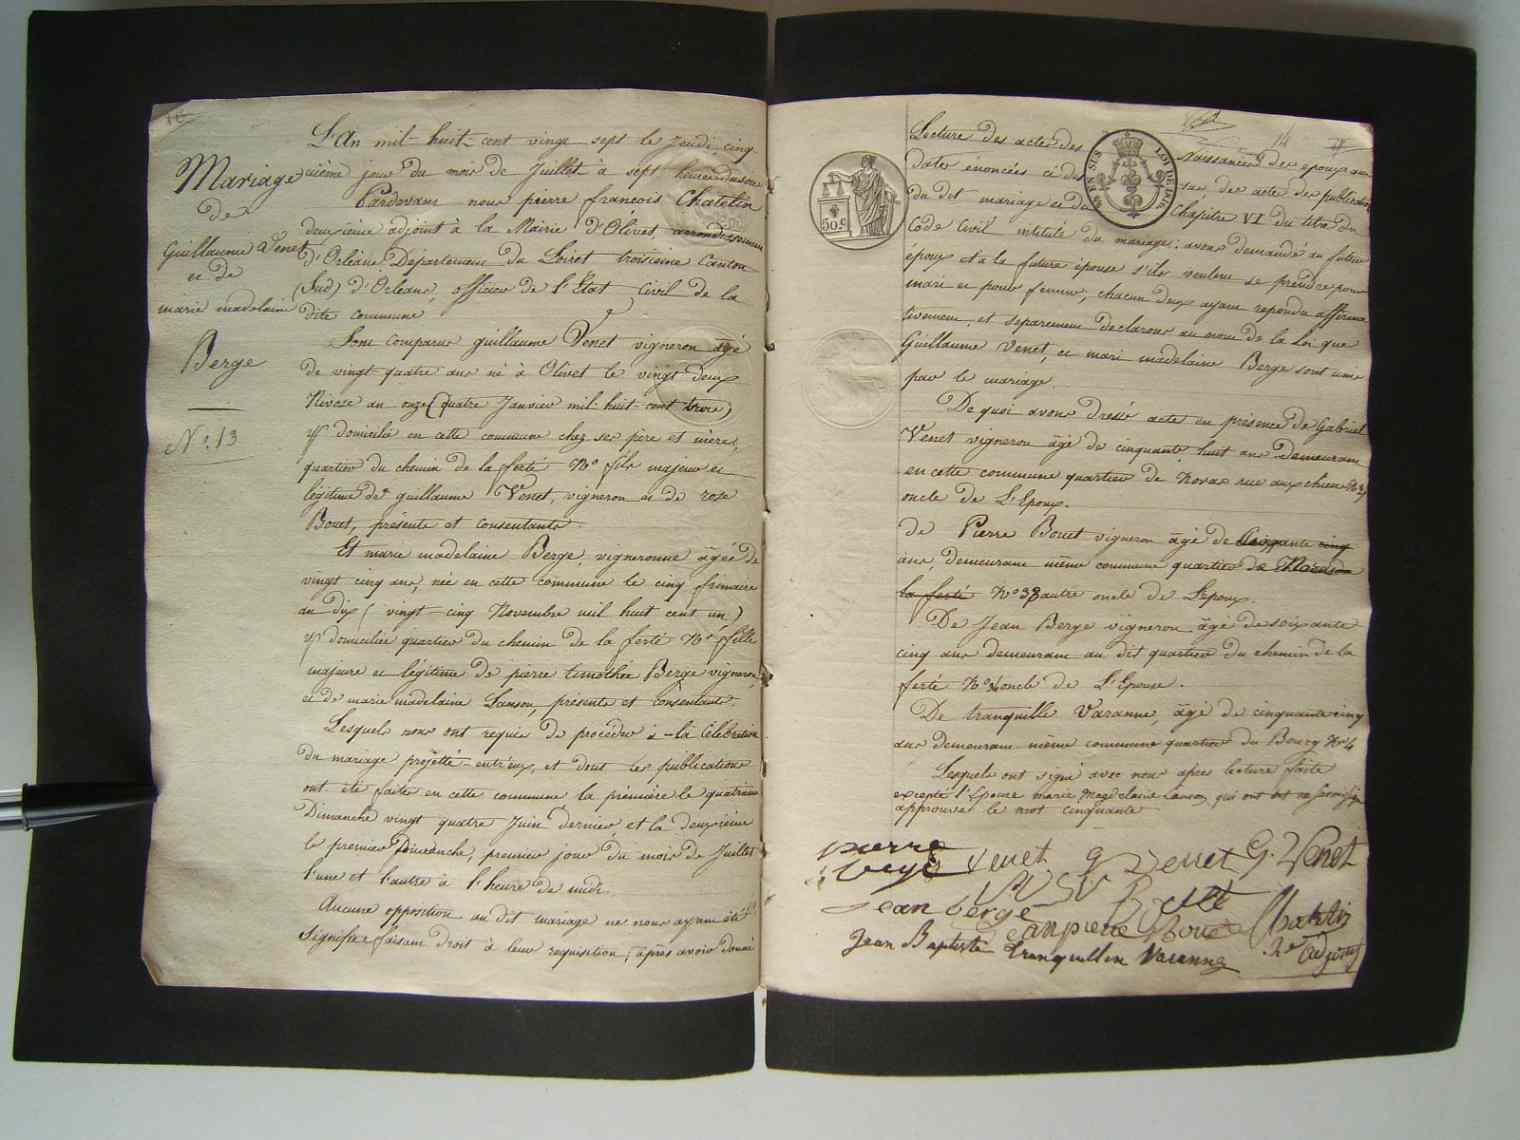 10
Mariage
de
Guillaume Venet
et de
marie madelaine
Berge
N.º 13
L'An mil-huit-cent vingt sept le Jeudi cinq
uième jour du mois de Juillet à sept heures du soir
Pardevant nous pierre françois Chatelin
deuxième adjoint à la Mairie d'Olivet, arrondissement
d'Orléans, Département du Loiret troisième Canton
(Sud) d'Orléans, officier de l'État Civil de la
dite commune
Sont comparus guillaume Venet vigneron âgé
de vingt quatre ans né à Olivet le vingt deux
Nivose an onze (quatre Janvier mil-huit-cent trois)
y domicilié en cette commune chez ses père et mère,
quartier du chemin de la ferté Nº fils majeur et
légitime de guillaume Venet, vigneron et de rose
Bouet, présents et consentants
Et marie madelaine Berge, vigneronne âgée de
vingt cinq ans, née en cette commune le cinq frimaire
an dix (vingt-cinq Novembre mil huit cent un)
y domiciliée quartier du chemin de la ferté Nº fille
majeure et légitime de pierre timothée Berge vigneron,
et de marie madelaine Sanson, présents et consentants.
Lesquels nous ont requis de procéder à la Célébration
du mariage projetté entr'eux, et dont les publications
ont été faites en cette commune la première le quatrième
Dimanche vingt quatre Juin dernier, et la deuxième
le premier Dimanche, premier jour du mois de Juillet
l'une et l'autre à l'heure de midi.
Aucune opposition au dit mariage ne nous ayant été
Signifiée faisant droit à leur requisition, après avoir donné
Lecture des actes des Naissances des epoux aux
dates énoncées ci des sus des actes de publications
du dit mariage et du Chapitre VI du titre du
Code Civil intitulé du mariage; avons demandé au futur
époux et à la future épouse s'ils veulent se prendre pour
mari et pour femme, chacun d'eux ayant repondu affirma
tivement, et separement declarons au nom de la Loi que
Guillaume Venet, et mari madelaine Berge sont unis
par le mariage.
De quoi avons dressé acte en présence de Gabriel
Venet vigneron âgé de cinquante huit ans demeurant
en cette commune quartier de rue aux chiens
oncle de L'Epoux.
de Pierre Bouet vigneron âgé de cinq
ans, demeurant même commune quartier de
la ferté Nº 38 autre oncle de L'epoux.
De Jean Berge vigneron âgé de soixante
cinq ans demeurant au dit quartier du chemin de la
ferté Nº oncle de L'Epouse.
De tranquille Varanne, âgé de cinquante cinq
ans demeurant même commune quartier du Bourg Nº 4
Lesquels ont signé avec nous après lecture faite
excepté l'Epouse marie Magdelaine Sanson, qui ont
approuvé le mot cinquante
50 c
LOI DE
pierre
berge venet g venet G. Venet
jean berge
jean pierre Bouet Chatelin
Jean Baptiste tranquillin Varanne adjoint